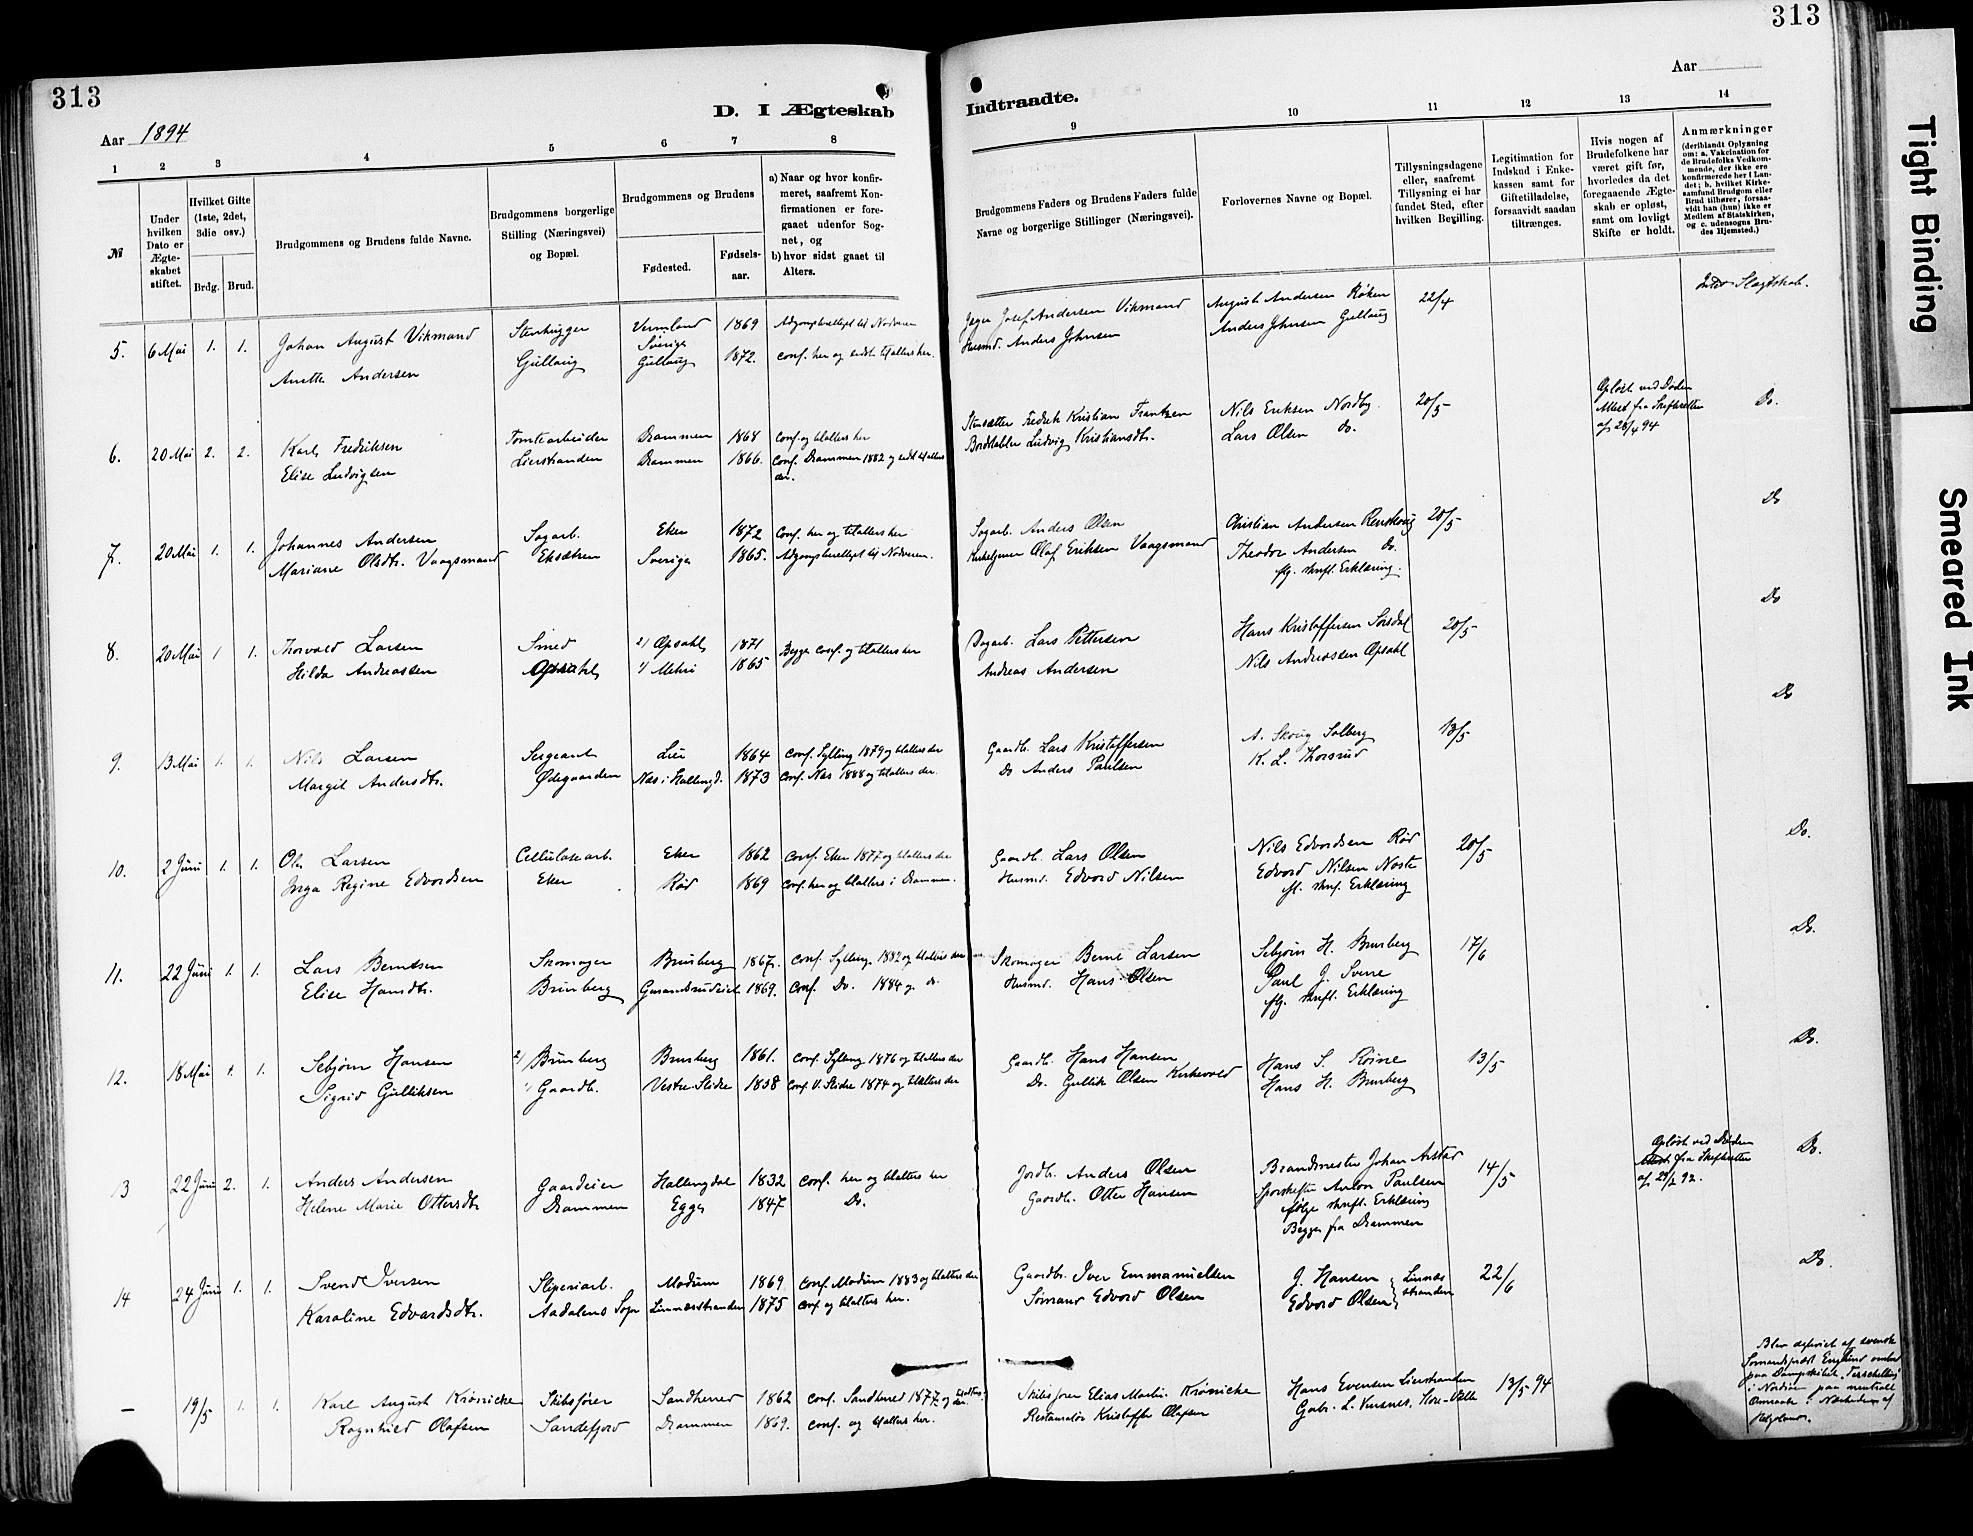 313
313
Aar 1894
D. I Ægteskab
Indtraadte.
Aar
1 2 3 4 5 6 7 8
9 10 11 12 13 14
№
Under hvilken Dato er Ægteskabet stiftet.
Hvilket Gifte (1ste, 2det, 3die osv.)
Brdg. Brud.
Brudgommens og Brudens fulde Navne.
Brudgommens borgerlige Stilling (Næringsvei) og Bopæl.
Brudgommens og Brudens
Fødested.
Fødselsaar.
a) Naar og hvor konfirmeret, saafremt Konfirmationen er foregaaet udenfor Sognet, og
b) hvor sidst gaaet til Alters.
Brudgommens Faders og Brudens Faders fulde Navne og borgerlige Stillinger (Næringsvei).
Forlovernes Navne og Bopæl.
Tillysningsdagene eller, saafremt Tillysning ei har fundet Sted, efter hvilken Bevilling.
Legitimation for Indskud i Enkekassen samt for Giftetilladelse, forsaavidt saadan tiltrænges.
Hvis nogen af Brudefolkene har været gift før, hvorledes da det foregaaende Ægteskab er opløst, samt om lovligt Skifte er holdt.
Anmærkninger (deriblandt Oplysning om: a. Vakcination for de Brudefolks Vedkommende, der ikke ere konfirmerede her i Landet; b. hvilket Kirkesamfund Brudgom eller Brud tilhører, forsaavidt han (hun) ikke er Medlem af Statskirken, og c. udensogns Brudes Hjemsted.)
5. 6 Mai 1. 1. Johan August Vikmand Stenhugger Vermland Sverige 1869 Josef Andersen Vikmand August Andersen Røken 22/4 Slægtskab.
Anette Andersen Gullaug Gullaug 1872. conf. her og sidst til alters her. Husmd. Anders Johnsen Anders Johnsen Gullaug
6. 20 Mai 2. 2. Karl Fredriksen Tomtearbeider Drammen 1868 conf. og tilalters her Fredrik Kristian Frantzen Nils Eriksen Nordby 20/5 Opløst ved Døden Attest fra Skifteretten af 28/4 94 Do.
Elise Ludvigsen Lierstranden Drammen 1866. conf. Drammen 1882 og sidst til alters der. Ludvig Kristiansdt. Lars Olsen do.
7. 20 Mai 1. 1. Johannes Andersen Sagarb. Eker 1872 conf. her og tilalters her Sagarb. Anders Olsen Christian Andersen Renskoug 20/5 Do
Mariane Olsdtr. Vaagsmand Eksætren Sverige 1865. Olaf Eriksen Vaagsmand Theodor Andersen Do.
flg. skriftl. Erklæring.
8. 20 Mai 1 1. Thorvald Larsen Smed 2) Opsahl 1871 Begge conf. og tilalters her Dagarb. Lars Pettersen Hans Kristoffersen Sørsdal 20/5 Do
Hilda Andreassen Opsahl 1) Mehri 1865 Andreas Andersen Nils Andreassen Opsahl
9. 13 Mai 1. 1. Nils Larsen Sergeant Lier 1864 conf. Sylling 1879 og tilalters der Gaardb. Lars Kristoffersen A. Skoug Solberg 13/5 Do
Margit Andersdtr. Ødegaarden Næs i Hallingd. 1873 conf. Næs 1888 og tilalters der. Do Anders Paulsen K. L. Thorsrud
10. 2 Juni 1. 1. Ole Larsen Cellulosearb. Eker 1862 conf. Eker 1877 og tilalters der Gaardb. Lars Olsen Nils Edvardsen Rød 20/5 Do.
Inga Regine Edvardsen Eker Rød 1869 conf. her og tilalters i Drammen. Husmd. Edvard Nilsen Edvard Nilsen Noste
fl. skrif. Erklæring
11. 22 Juni 1. 1. Lars Berntsen Skomager Brusberg 1867. conf. Sylling 1882 og tilalters der Skomager Bernt Larsen Sebjørn H. Brusberg 17/6 Do.
Elise Hansdtr. Brusberg 1869. conf. Do. 1884 og do. Husmd. Hans Olsen Paul G. Svere
flg. skriftl. Erklæring
12. 18 Mai 1. 1. Sebjørn Hansen 2) Brusberg Brusberg 1861. conf. Sylling 1876 og tilalters der Gaardb. Hans Hansen Hans S. Røine 13/5 Do.
Sigrid Gulliksen 1) Gaardb. Vestre Slidre 1858 conf. V. Slidre 1874 og tilalters der Do. Gullik Olsen Kirkevold Hans H. Brusberg
13 22 Juni 2. 1. Anders Andersen Gaardeier Hallingdal 1832 conf. her og tilalters her Jordb. Anders Olsen Brandmester Johan Arstad 14/5 Opløst ved Døden Attest fra Skifteretten af 29/2 92. Do.
Helene Marie Ottersdtr Drammen Egge 1847 Do. Gaardb. Otter Hansen Sporskifter Anton Paulsen
følge skriftl. Erklæring
Begge fra Drammen
14 24 Juni 1. 1. Svend Iversen Sliperiarb. Modum 1869. conf. Modum 1883 og tilalters der Gaardbr. Iver Emmanuelsen G. Hansen Linnæsstranden 22/6 Do.
Karoline Edvardsdtr. Aadalens Sogn Linnæsstranden 1875 conf. og tilalters her. Sømand Edvard Olsen Edvard Olsen
— 19/5 1. 1. Karl August Krönicke Skibsfører Sandherred 1862 conf. Sandherred 1877 og tilalters der. Skibsfører Elias Martin Krönicke Hans Evensen Lierstranden 13/5 94
Ragnhild Olafsen Sandefjord Drammen 1869. conf. og tilalters her. Restauratør Kristoffer Olafsen Gabr. L. Vinsnes, Store-Valle
Blev afgivet af svensk Sømandsprest England ombord paa Dampskibet "Terschelling" i Nordsøen paa neutralt Omraade i Nærheden af Helgoland.
Tight Binding
Smeared Ink